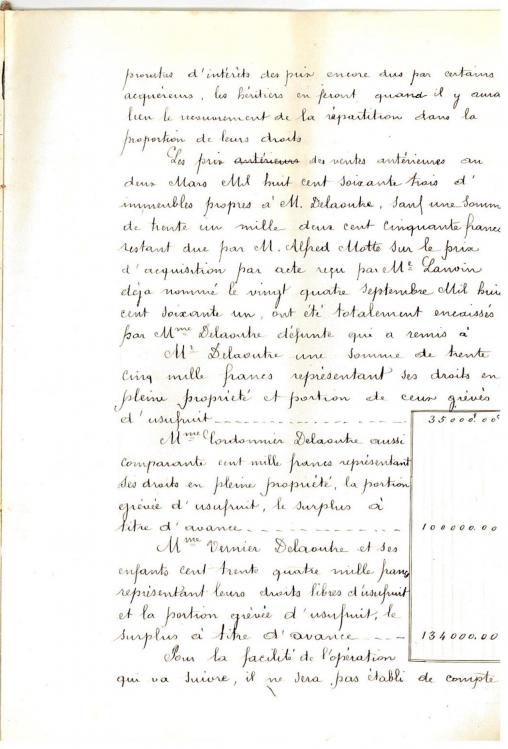 proratas d'intérêts des prix encore dus par certains
acquéreurs, les héritiers en feront quand il y aura
lieu le recouvrement de la répartition dans la
proportion de leurs droits
Les prix antérieurs des ventes antérieures au
deux Mars Mil huit cent soixante trois d'
immeubles propres à M. Delaoutre, sauf une somm
de trente un mille deux cent cinquante francs
restant due par M. Alfred Motte sur le prix
d'acquisition par acte reçu par Me Lanvin
déja nommé le vingt quatre Septembre Mil huit
cent soixante un, ont été totalement encaissés
par Mme Delaoutre défunte qui a remis à
Mr Delaoutre une somme de trente
cinq mille francs représentant ses droits en
pleine propriété et portion de ceux grévés
d'usufruit 35000.00
Mme Cordonnier Delaoutre aussi
comparante cent mille francs représentant
ses droits en pleine propriété, la portion
grévée d'usufruit, le surplus à
titre d'avance 100000.00
Mme Vernier Delaoutre et ses
enfants cent trente quatre mille francs
représentant leurs droits libres d'usufruit
et la portion grévée d'usufruit, le
surplus à titre d'avance 134000.00
Pour la facilité de l'opération
qui va suivre, il ne sera pas établi de compte